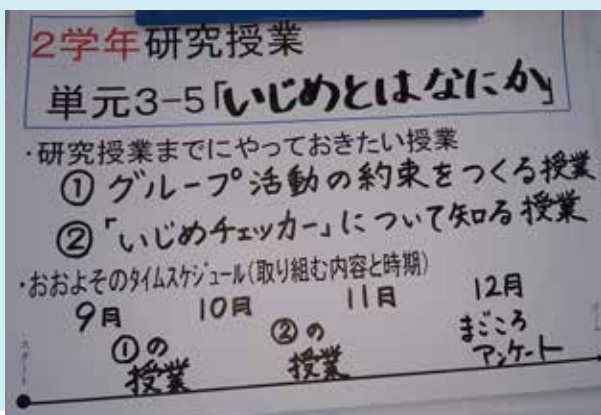 2学年研究授業
単元3-5「いじめとはなにか」
・研究授業までにやっておきたい授業
① グループ活動の約束をつくる授業
② 「いじめチェッカー」について知る授業
・おおよそのタイムスケジュール(取り組む内容と時期)
9月 10月 11月 12月
①の授業
②の授業
まごころアンケート
スタート